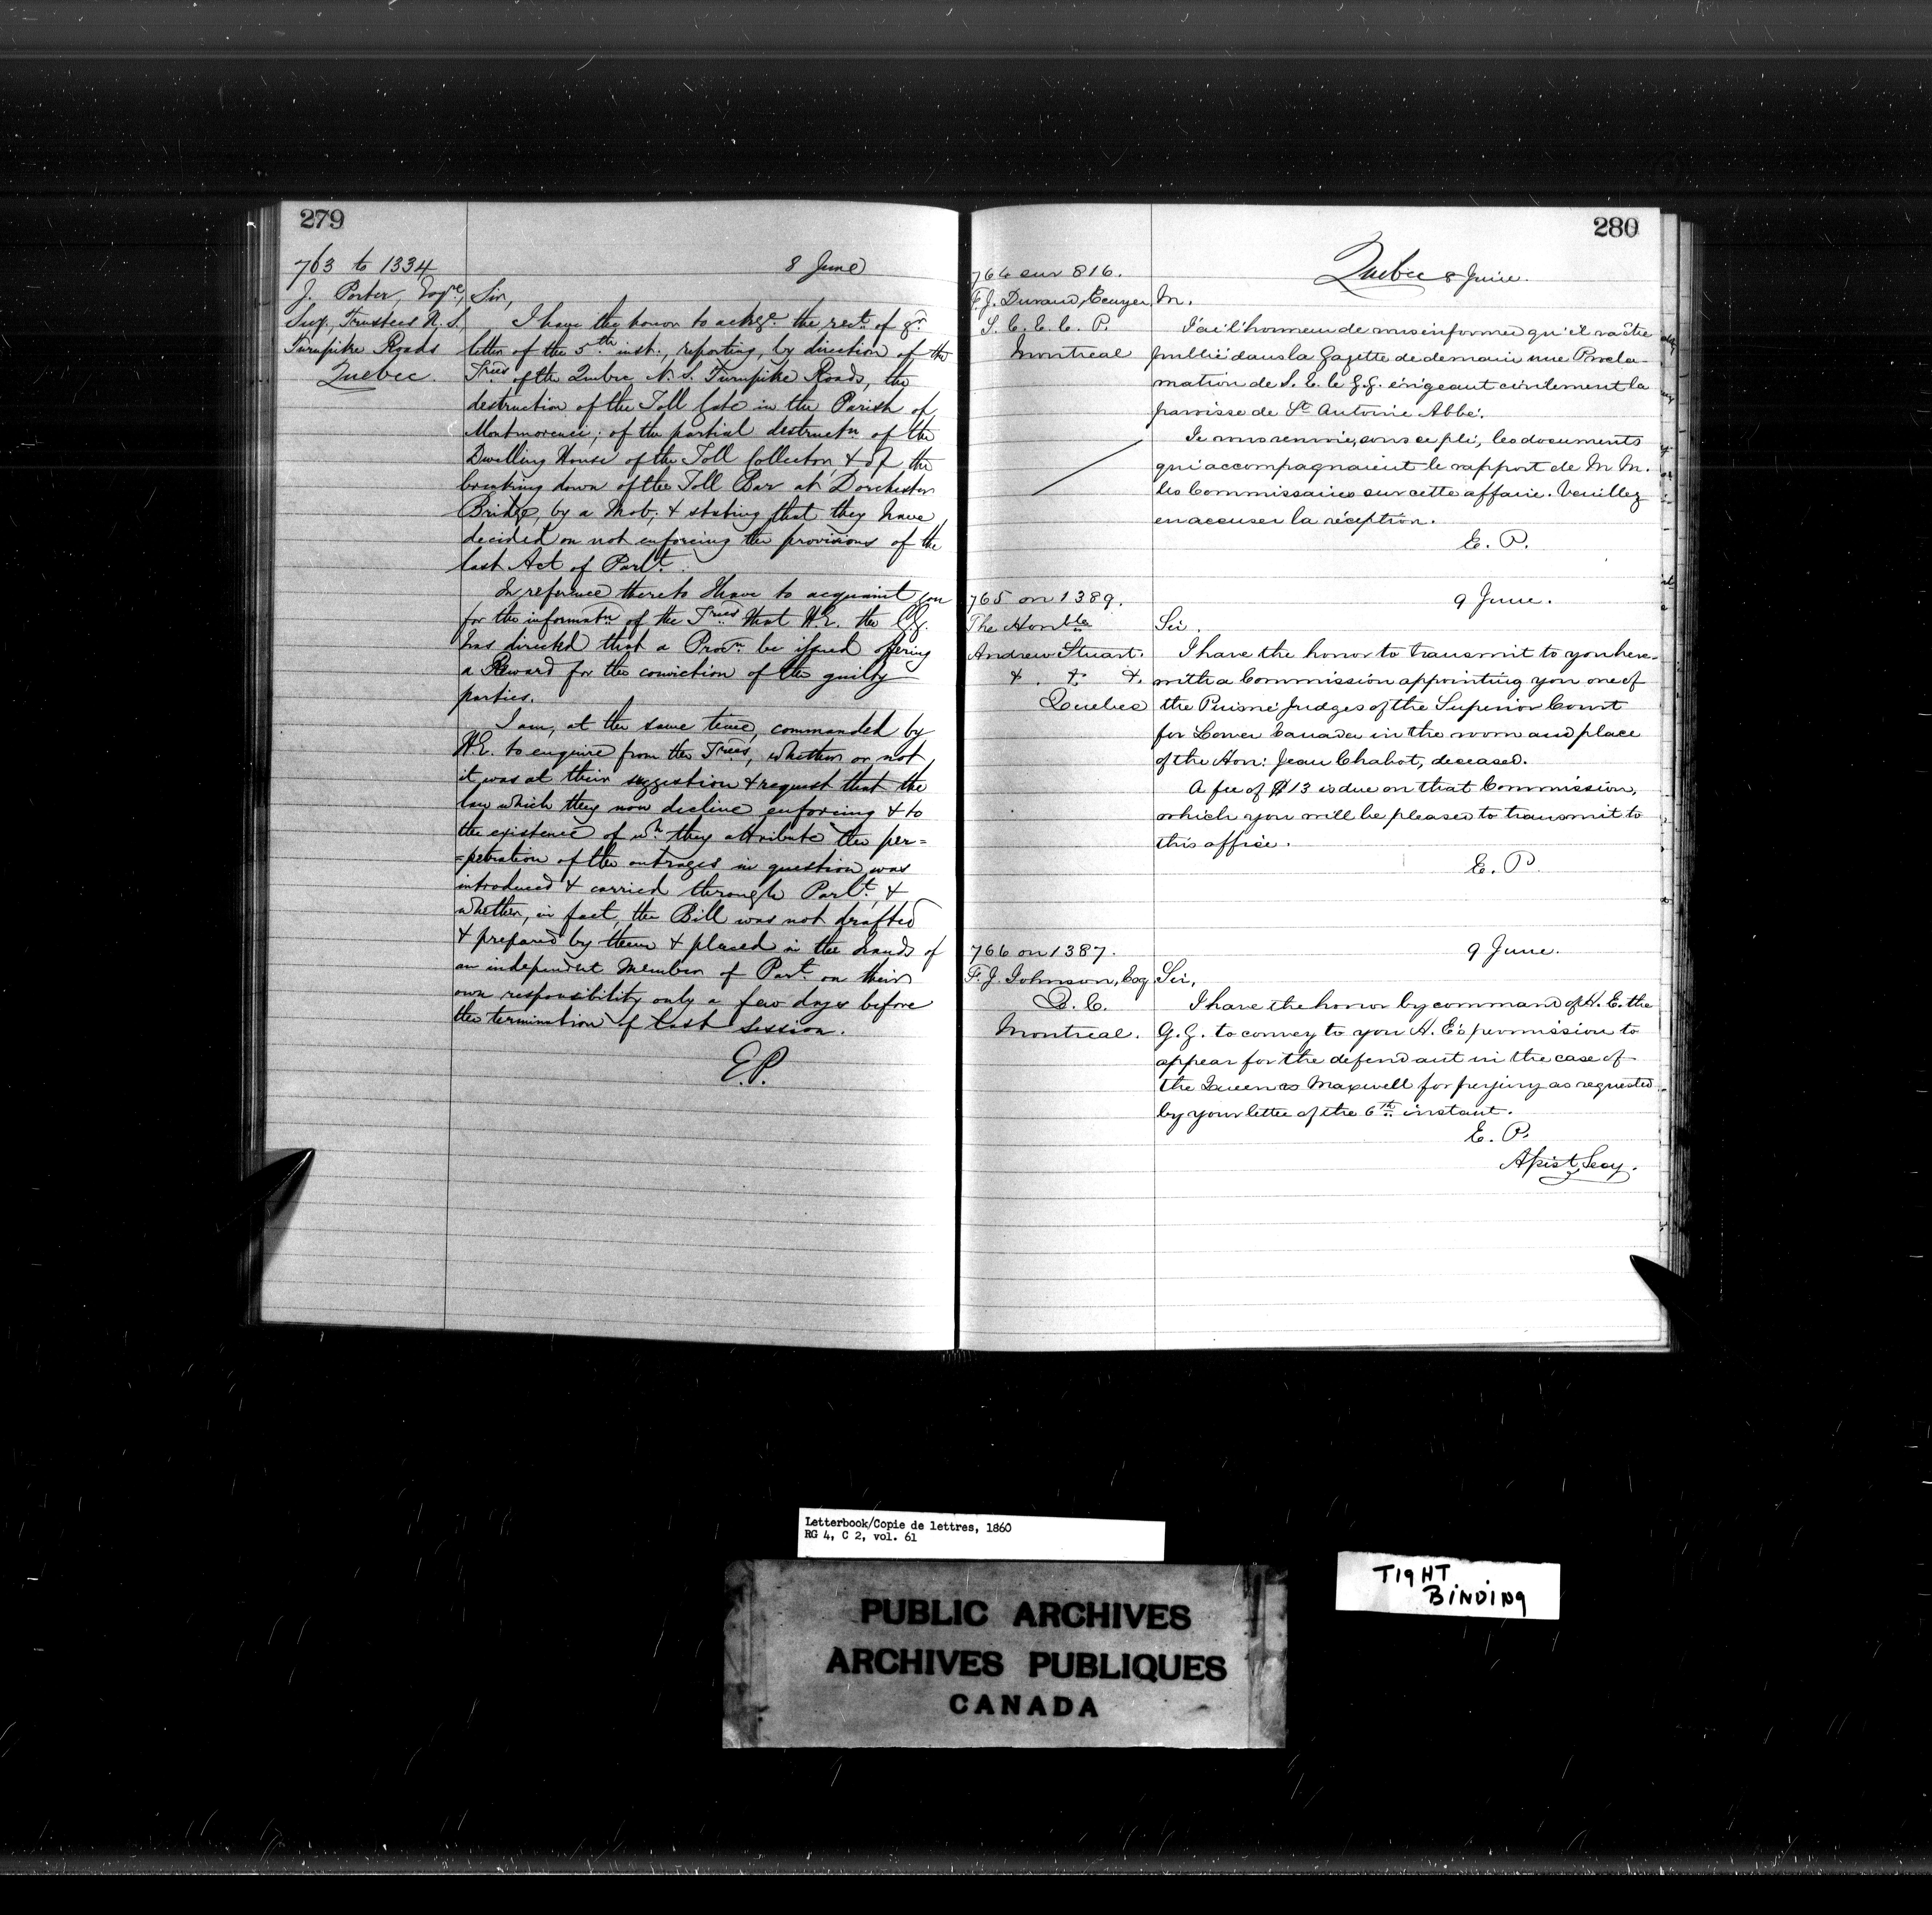 279
763 to 1334
J. Porter, Esqre,
Secy, Trustees N. S.
Turnpike Roads
Quebec.
8 June
Sir,
I have the honor to ackge. the rect. of yr.
letter of the 5th inst., reporting, by direction of the
Trees of the Quebec N. S. Turnpike Roads, the
destruction of the Toll Gate in the Parish of
Montmorenci; of the partial destructn of the
Dwelling House of the Toll Collector, & of the
breaking down of the Toll Bar at Dorchester
Bridge, by a Mob; & stating that they have
decided on not enforcing the provisions of the
last Act of Parlt.
In reference thereto I have to acquaint you
for the informatn of the Trees that H.E. the G.G.
has directed that a Procn be issued offering
a Reward for the conviction of the guilty
parties.
I am, at the same time, commanded by
H.E. to enquire from the Trees, whether or not
it was at their suggestion & request that the
law which they now decline enforcing & to
the existence of wh. they attribute the per=
=petration of the outrages in question was
introduced & carried through Parlt. &
whether, in fact, the Bill was not drafted
& prepared by them & placed in the hands of
an independent Member of Part. on their
own responsibility only a few days before
the termination of last Session.
E.P.
280
Quebec 8 Juin.
764 sur 816.
F. J. Durand, Ecuyer,
S. C. E. C. P.
Montreal
M.
J'ai l'honneur de vous informer qu'il va être
publié dans la Gazette de demain une Procla-
mation de S. E. le G. G. érigeant civilement la
paroisse de St. Antoine Abbé.
Je vous renvoie, sous ce pli, les documents
qui accompagnaient le rapport de M M.
les Commissaires sur cette affaire. Veuillez
en accuser la réception.
E. P.
765 on 1389.
The Honble
Andrew Stuart.
&. &. &.
Quebec
9 June.
Sir.
I have the honor to transmit to you here-
with a Commission appointing you one of
the Puisné Judges of the Superior Court
for Lower Canada in the room and place
of the Hon: Jean Chabot, deceased.
A fee of $13 is due on that Commission,
which you will be pleased to transmit to
this office.
E. P.
766 on 1387.
F. J. Johnson, Esq
Q. C.
Montreal.
9 June.
Sir,
I have the honor by command of H. E. the
G. G. to convey to you H. E's permission to
appear for the defendant in the case of
the Queen vs Maxwell for perjury as requested
by your letter of the 6th instant.
E. P.
Assist Secy.
Letterbook/Copie de lettres, 1860
RG 4, C 2, vol. 61
PUBLIC ARCHIVES
ARCHIVES PUBLIQUES
CANADA
TIGHT
BINDING